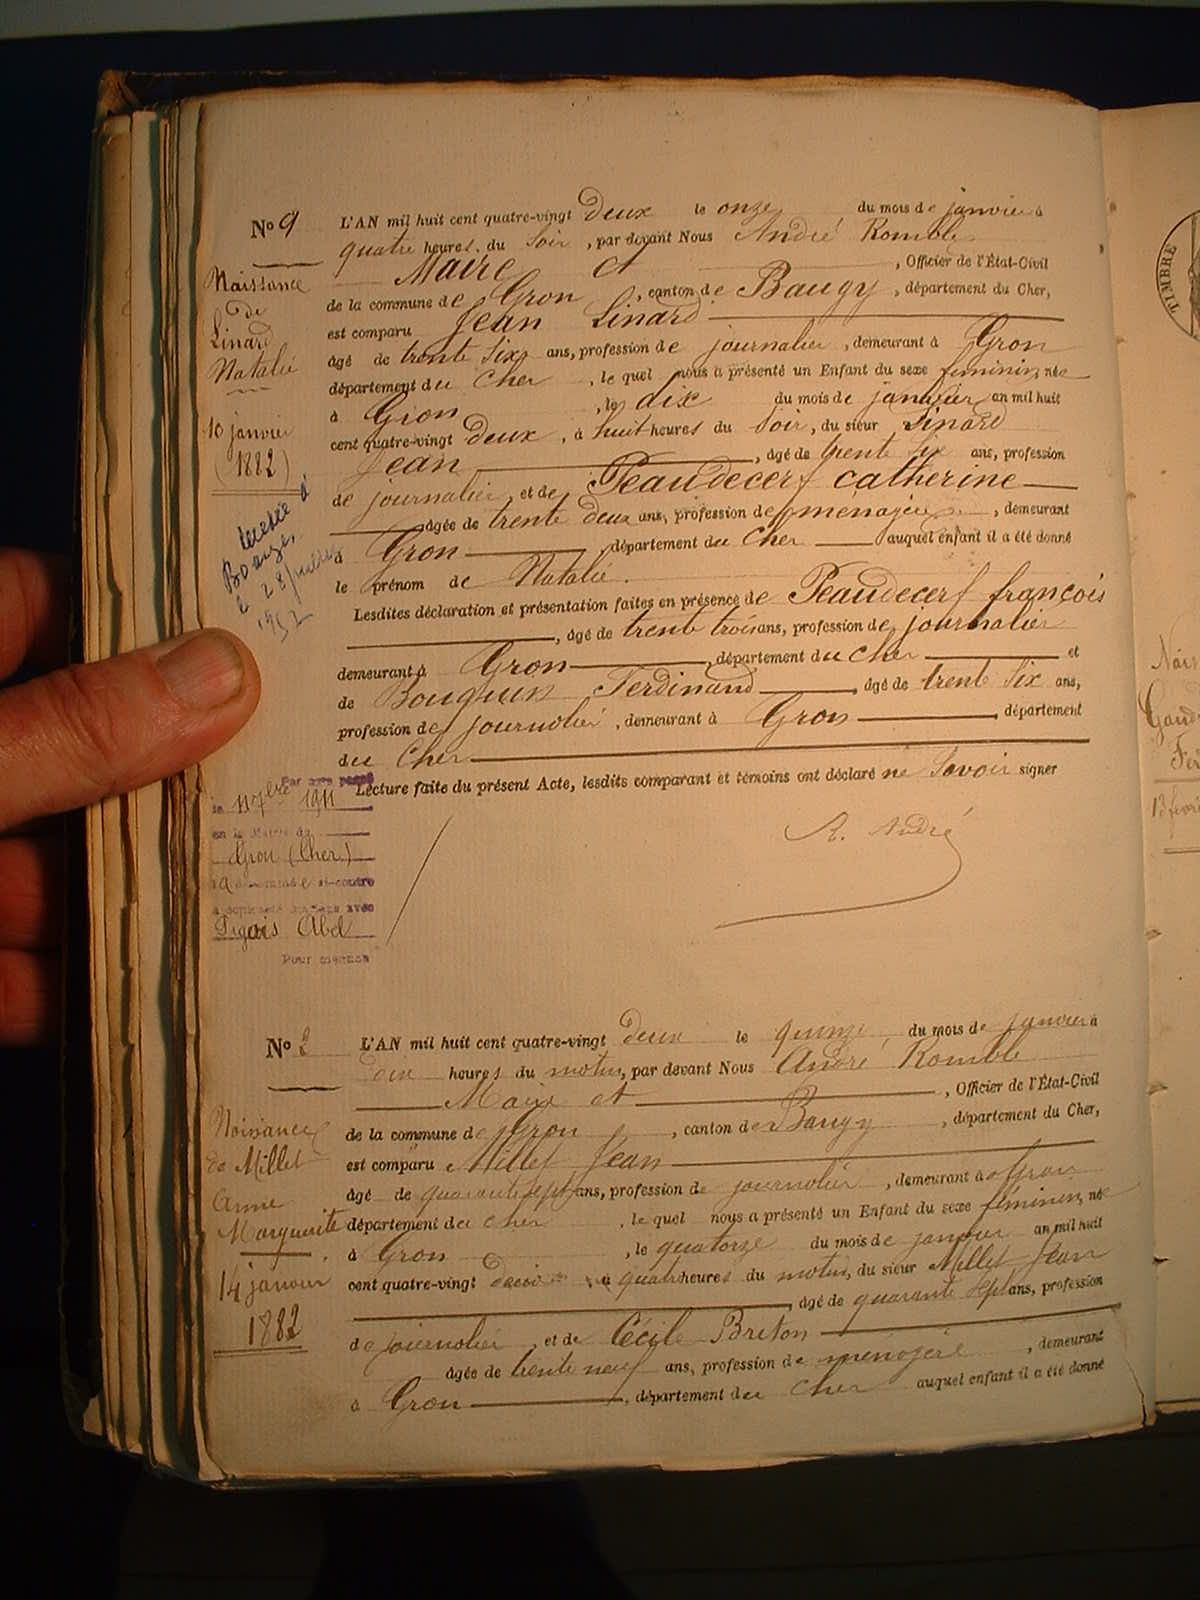 No 9
L'AN mil huit cent quatre-vingt deux le onze du mois de janvier à
quatre heures du soir, par devant Nous André Romble
Maire et , Officier de l'État-Civil
de la commune de Gron, canton de Baugy, département du Cher,
est comparu Jean Linard
âgé de trente six ans, profession de journalier, demeurant à Gron
département du Cher, le quel nous a présenté un Enfant du sexe féminin, née
à Gron, le dix du mois de janvier an mil huit
cent quatre-vingt deux, à huit heures du soir, du sieur Linard
Jean, âgé de trente six ans, profession
de journalier et de Peaudecerf catherine
âgée de trente deux ans, profession de menagère, demeurant
à Gron, département du Cher auquel enfant il a été donné
le prénom de Natalie.
Lesdites déclaration et présentation faites en présence de Peaudecerf françois
, âgé de trente trois ans, profession de journalier
demeurant à Gron, département du Cher et
de Bouquin Ferdinand, âgé de trente six ans,
profession de journalier, demeurant à Gron, département
du Cher
Lecture faite du présent Acte, lesdits comparant et témoins ont déclaré ne savoir signer
A. André
Naissance
de
Linard
Natalie
10 janvier
(1882)
à
28
Par acte passé
le 11 7bre 1911
en la Mairie de
Gron (Cher)
a
avec
Pigois Abel
Pour mention
No 2
L'AN mil huit cent quatre-vingt deux le quinze du mois de janvier à
dix heures du matin, par devant Nous André Romble
Maire et , Officier de l'État-Civil
de la commune de Gron, canton de Baugy, département du Cher,
est comparu Millet Jean
âgé de quarante sept ans, profession de journalier, demeurant à Gron
département du Cher, le quel nous a présenté un Enfant du sexe féminin, né
à Gron, le quatorze du mois de janvier an mil huit
cent quatre-vingt deux à quatre heures du matin, du sieur Millet Jean
, âgé de quarante sept ans, profession
de journalier, et de Cécile Breton
âgée de trente neuf ans, profession de ménagère, demeurant
à Gron, département du Cher auquel enfant il a été donné
Naissance
de Millet
Anne
Marguerite
14 janvier
1882
TIMBRE
Nais
Gaud
Fer
13 fevri